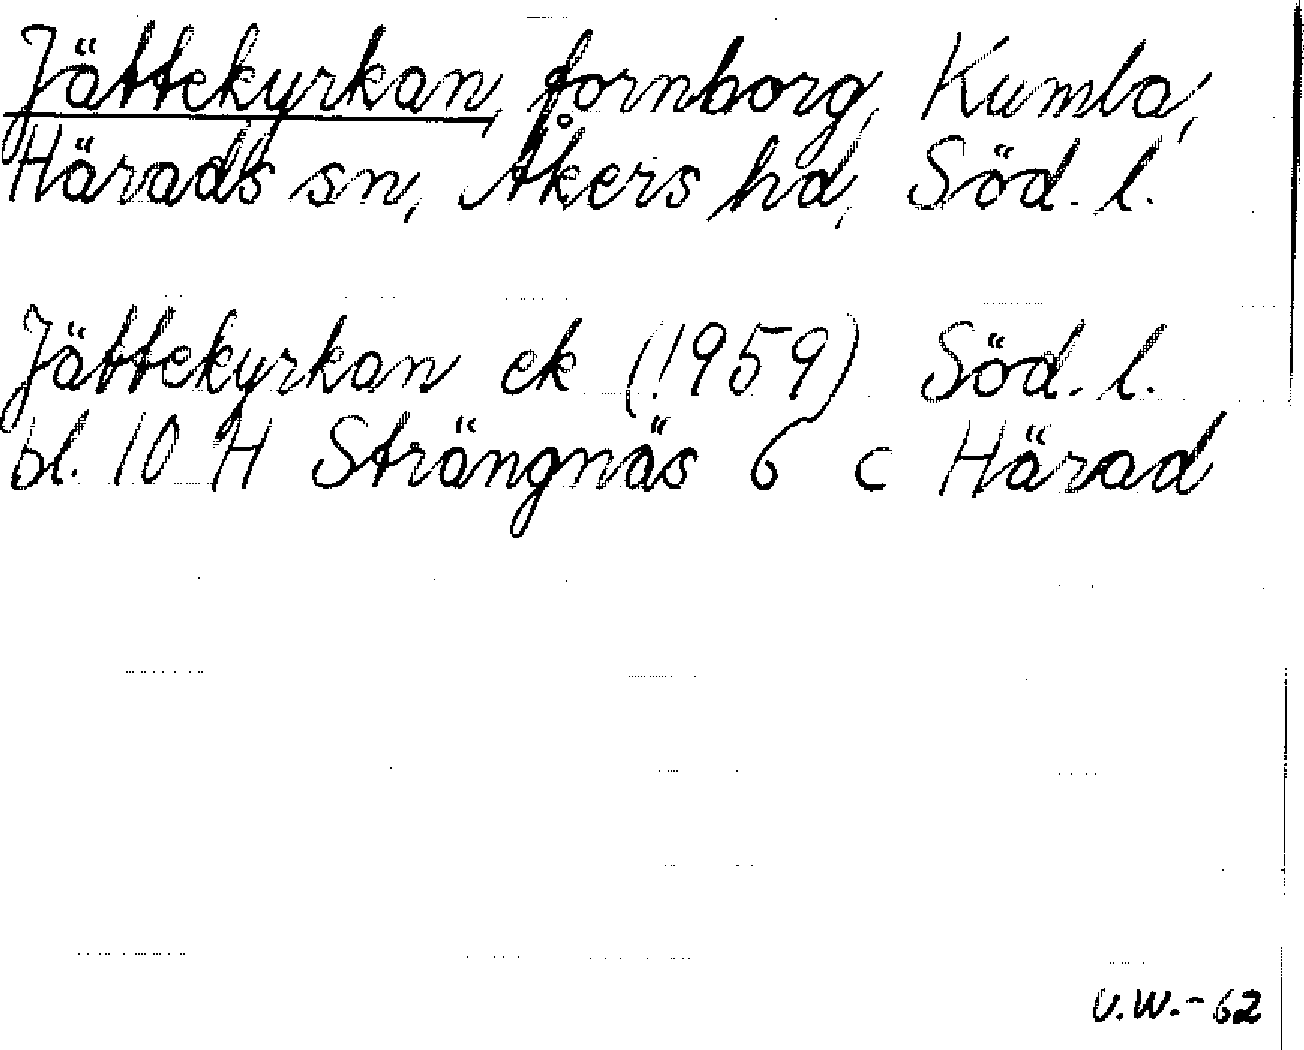 Jättekyrkan, fornborg, Kumla,
Härads sn, Åkers hd, Söd. l.
Jättekyrkan ek (1959) Söd. l.
bl. 10 H Strängnäs 6 c Härad
U.W.-62